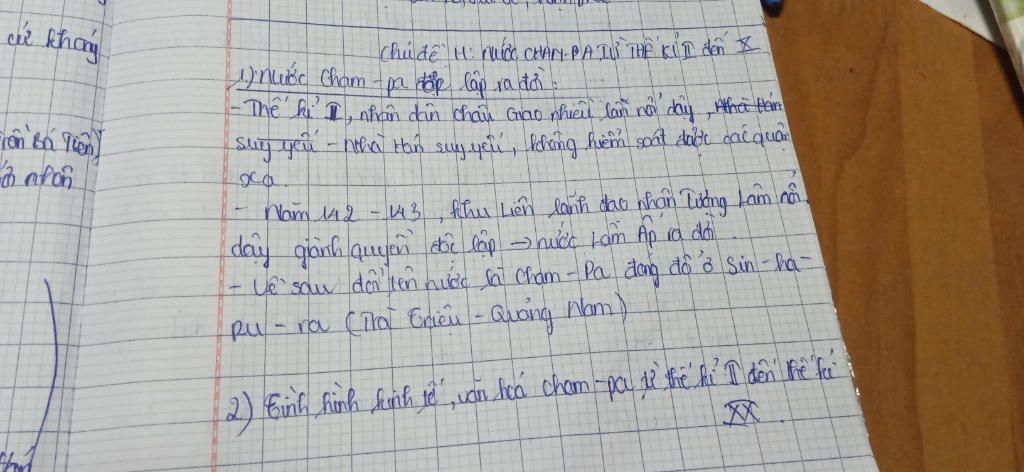 cứ không
Chủ đề 4: nước CHAM-PA TỪ THẾ KỈ II đến X
1) nước Cham-pa độc lập ra đời:
- Thế kỉ II, nhân dân châu Giao nhiều lần nổi dậy, nhà Hán
suy yếu - nhà Hán suy yếu, không kiểm soát được các quận
xa.
- Năm 192 - 193, Khu Liên lãnh đạo nhân Tượng Lâm nổi
dậy giành quyền độc lập → nước Lâm Ấp ra đời.
- Về sau đổi tên nước là Cham-Pa đóng đô ở Sin-ha-
pu-ra (Trà Kiệu - Quảng Nam)
2) Tình hình kinh tế, văn hoá cham-pa từ thế kỉ II đến thế kỉ
XX.